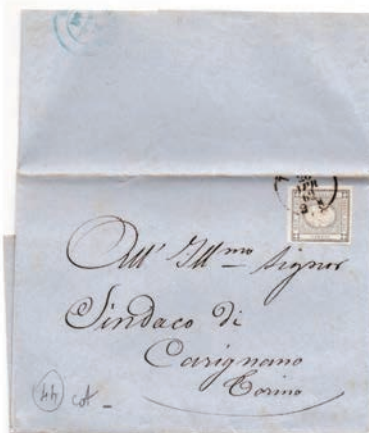 APR
All' Ill.mo Signor
Sindaco di
Carignano
Torino
44 cot